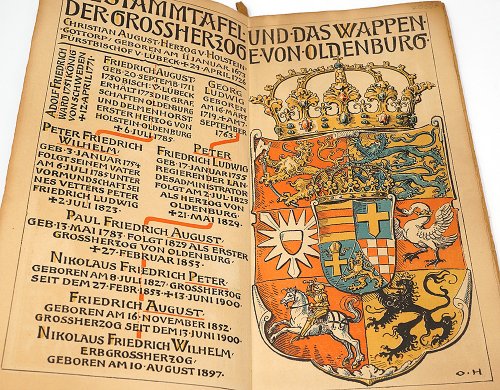 STAMMTAFEL UND DAS WAPPEN
DER GROSSHERZOGE VON OLDENBURG
CHRISTIAN AUGUST·HERZOG V·HOLSTEIN
GOTTORP/GEBOREN AM 11 JANUAR 1673
FÜRSTBISCHOF V·LÜBECK+24·APRIL 1726
ADOLF FRIEDRICH
WARD 1751 KÖNIG
VON SCHWEDEN
+12·APRIL 1771·
FRIEDRICH AUGUST·
GEB·20 SEPTEMBER 1711
1750 BISCH·V·LÜBECK
ERHÄLT 1773 DIE GRAF
SCHAFTEN OLDENBURG
UND DELMENHORST
ERSTER HERZOG VON
HOLSTEIN·OLDENBURG
+6·JULI 1785·
GEORG
LUDWIG
GEBOREN
AM 16 MÄRZ
1719·+AM 7
SEPTEMBER
1763·
PETER FRIEDRICH
WILHELM·
GEB·3·JANUAR 1754
FOLGT SEINEN VATER
AM 6 JULI 1785 UNTER
VORMUNDSCHAFT SEI
NES VETTERS PETER
FRIEDRICH LUDWIG
+2·JULI 1823·
PETER
FRIEDRICH LUDWIG
GEB·17 JANUAR 1755
REGIERENDER LAN
DESADMINISTRATOR
FOLGT AM 2 JULI 1823
ALS HERZOG VON
OLDENBURG
+21·MAI 1829·
PAUL FRIEDRICH AUGUST·
GEB·13·MAI 1783·FOLGT 1829 ALS ERSTER
GROSSHERZOG VON OLDENBURG
+27·FEBRUAR 1853·
NIKOLAUS FRIEDRICH PETER·
GEBOREN AM 8 JULI 1827·GROSSHERZOG
SEIT DEM 27 FEBR·1853·+13·JUNI 1900·
FRIEDRICH AUGUST·
GEBOREN AM 16 NOVEMBER 1852
GROSSHERZOG SEIT DEM 13 JUNI 1900·
NIKOLAUS FRIEDRICH WILHELM·
ERBGROSSHERZOG·
GEBOREN AM 10 AUGUST 1897·
O·H